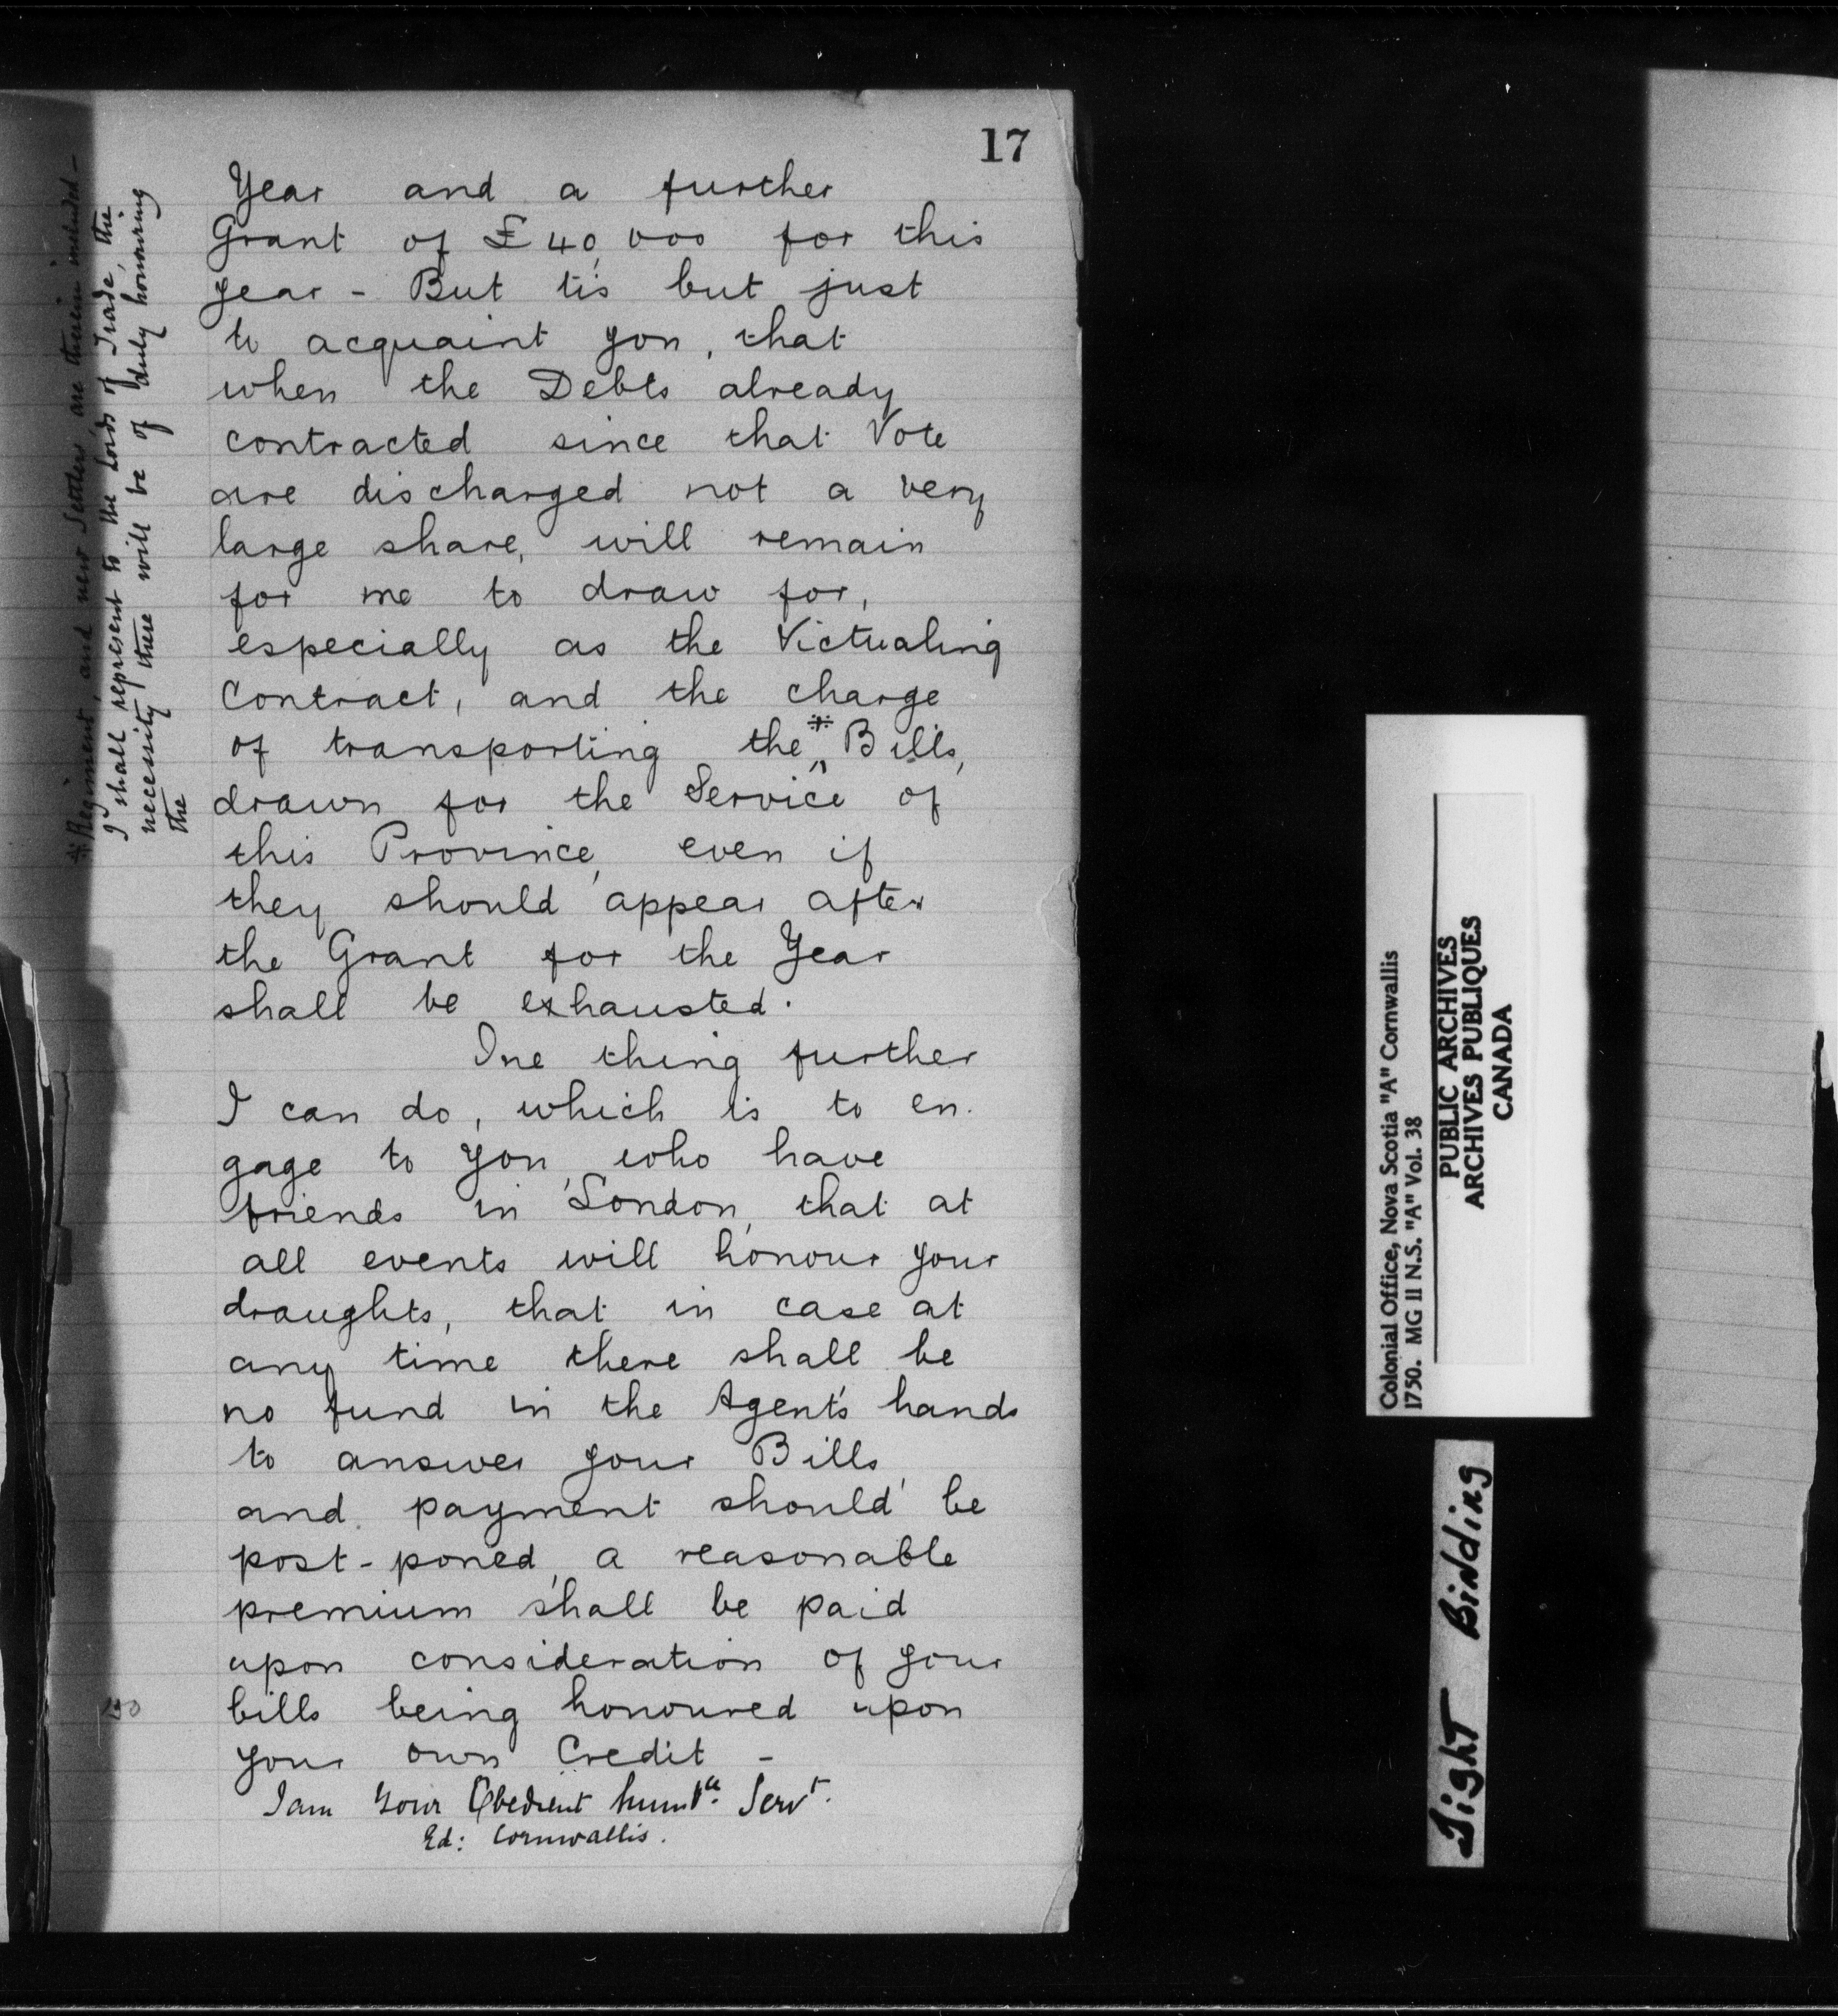 17
Year and a further
Grant of £40,000 for this
year - But tis but just
to acquaint you, that
when the Debts already
contracted since that Vote
are discharged not a very
large share, will remain
for me to draw for,
especially as the Victualing
Contract, and the charge
of transporting the * Bills,
drawn for the Service of
this Province, even if
they should appear after
the Grant for the Year
shall be exhausted.
One thing further
I can do, which is to en-
gage to you, who have
friends in London, that at
all events will honour your
draughts, that in case at
any time there shall be
no fund in the Agent's hands
to answer your Bills,
and payment should be
post-poned, a reasonable
premium shall be paid
upon consideration of your
bills being honoured upon
your own Credit -
I am Your Obedient humble Servt.
Ed: Cornwallis.
* Regiment, and new Settlers, are therein included -
I shall represent to the Lords of Trade, the
necessity there will be of duly honouring
the
Colonial Office, Nova Scotia "A" Cornwallis
1750. MG 11 N.S. "A" Vol. 38
PUBLIC ARCHIVES
ARCHIVES PUBLIQUES
CANADA
Tight Binding